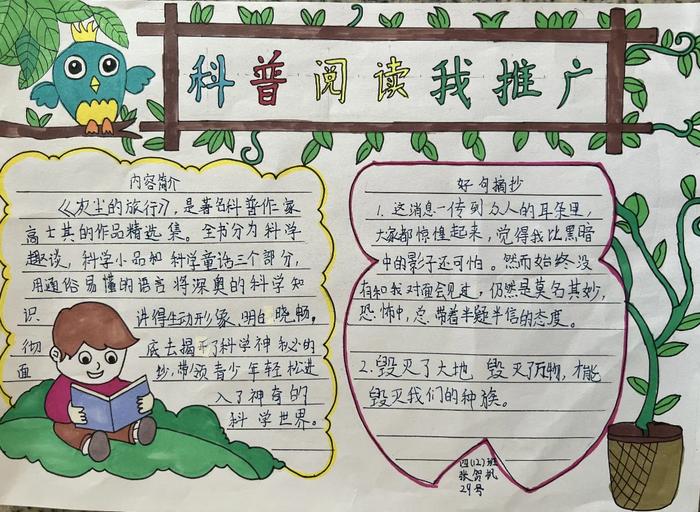 科普阅读我推广
内容简介
《灰尘的旅行》,是著名科普作家
高士其的作品精选集。全书分为科学
趣谈,科学小品和科学童话三个部分,
用通俗易懂的语言将深奥的科学知
识 讲得生动形象、明白晓畅,
彻 底去揭开了科学神秘的
面 纱,带领青少年轻松进
入了神奇的
科学世界。
好句摘抄
1. 这消息一传到众人的耳朵里,
大家都惊惶起来,觉得我比黑暗
中的影子还可怕。然而始终没
有和我对面会见过,仍然是莫名其妙,
恐怖中,总带着半疑半信的态度。
2. 毁灭了大地 毁灭了万物,才能
毁灭我们的种族。
四(12)班
张贺
29号